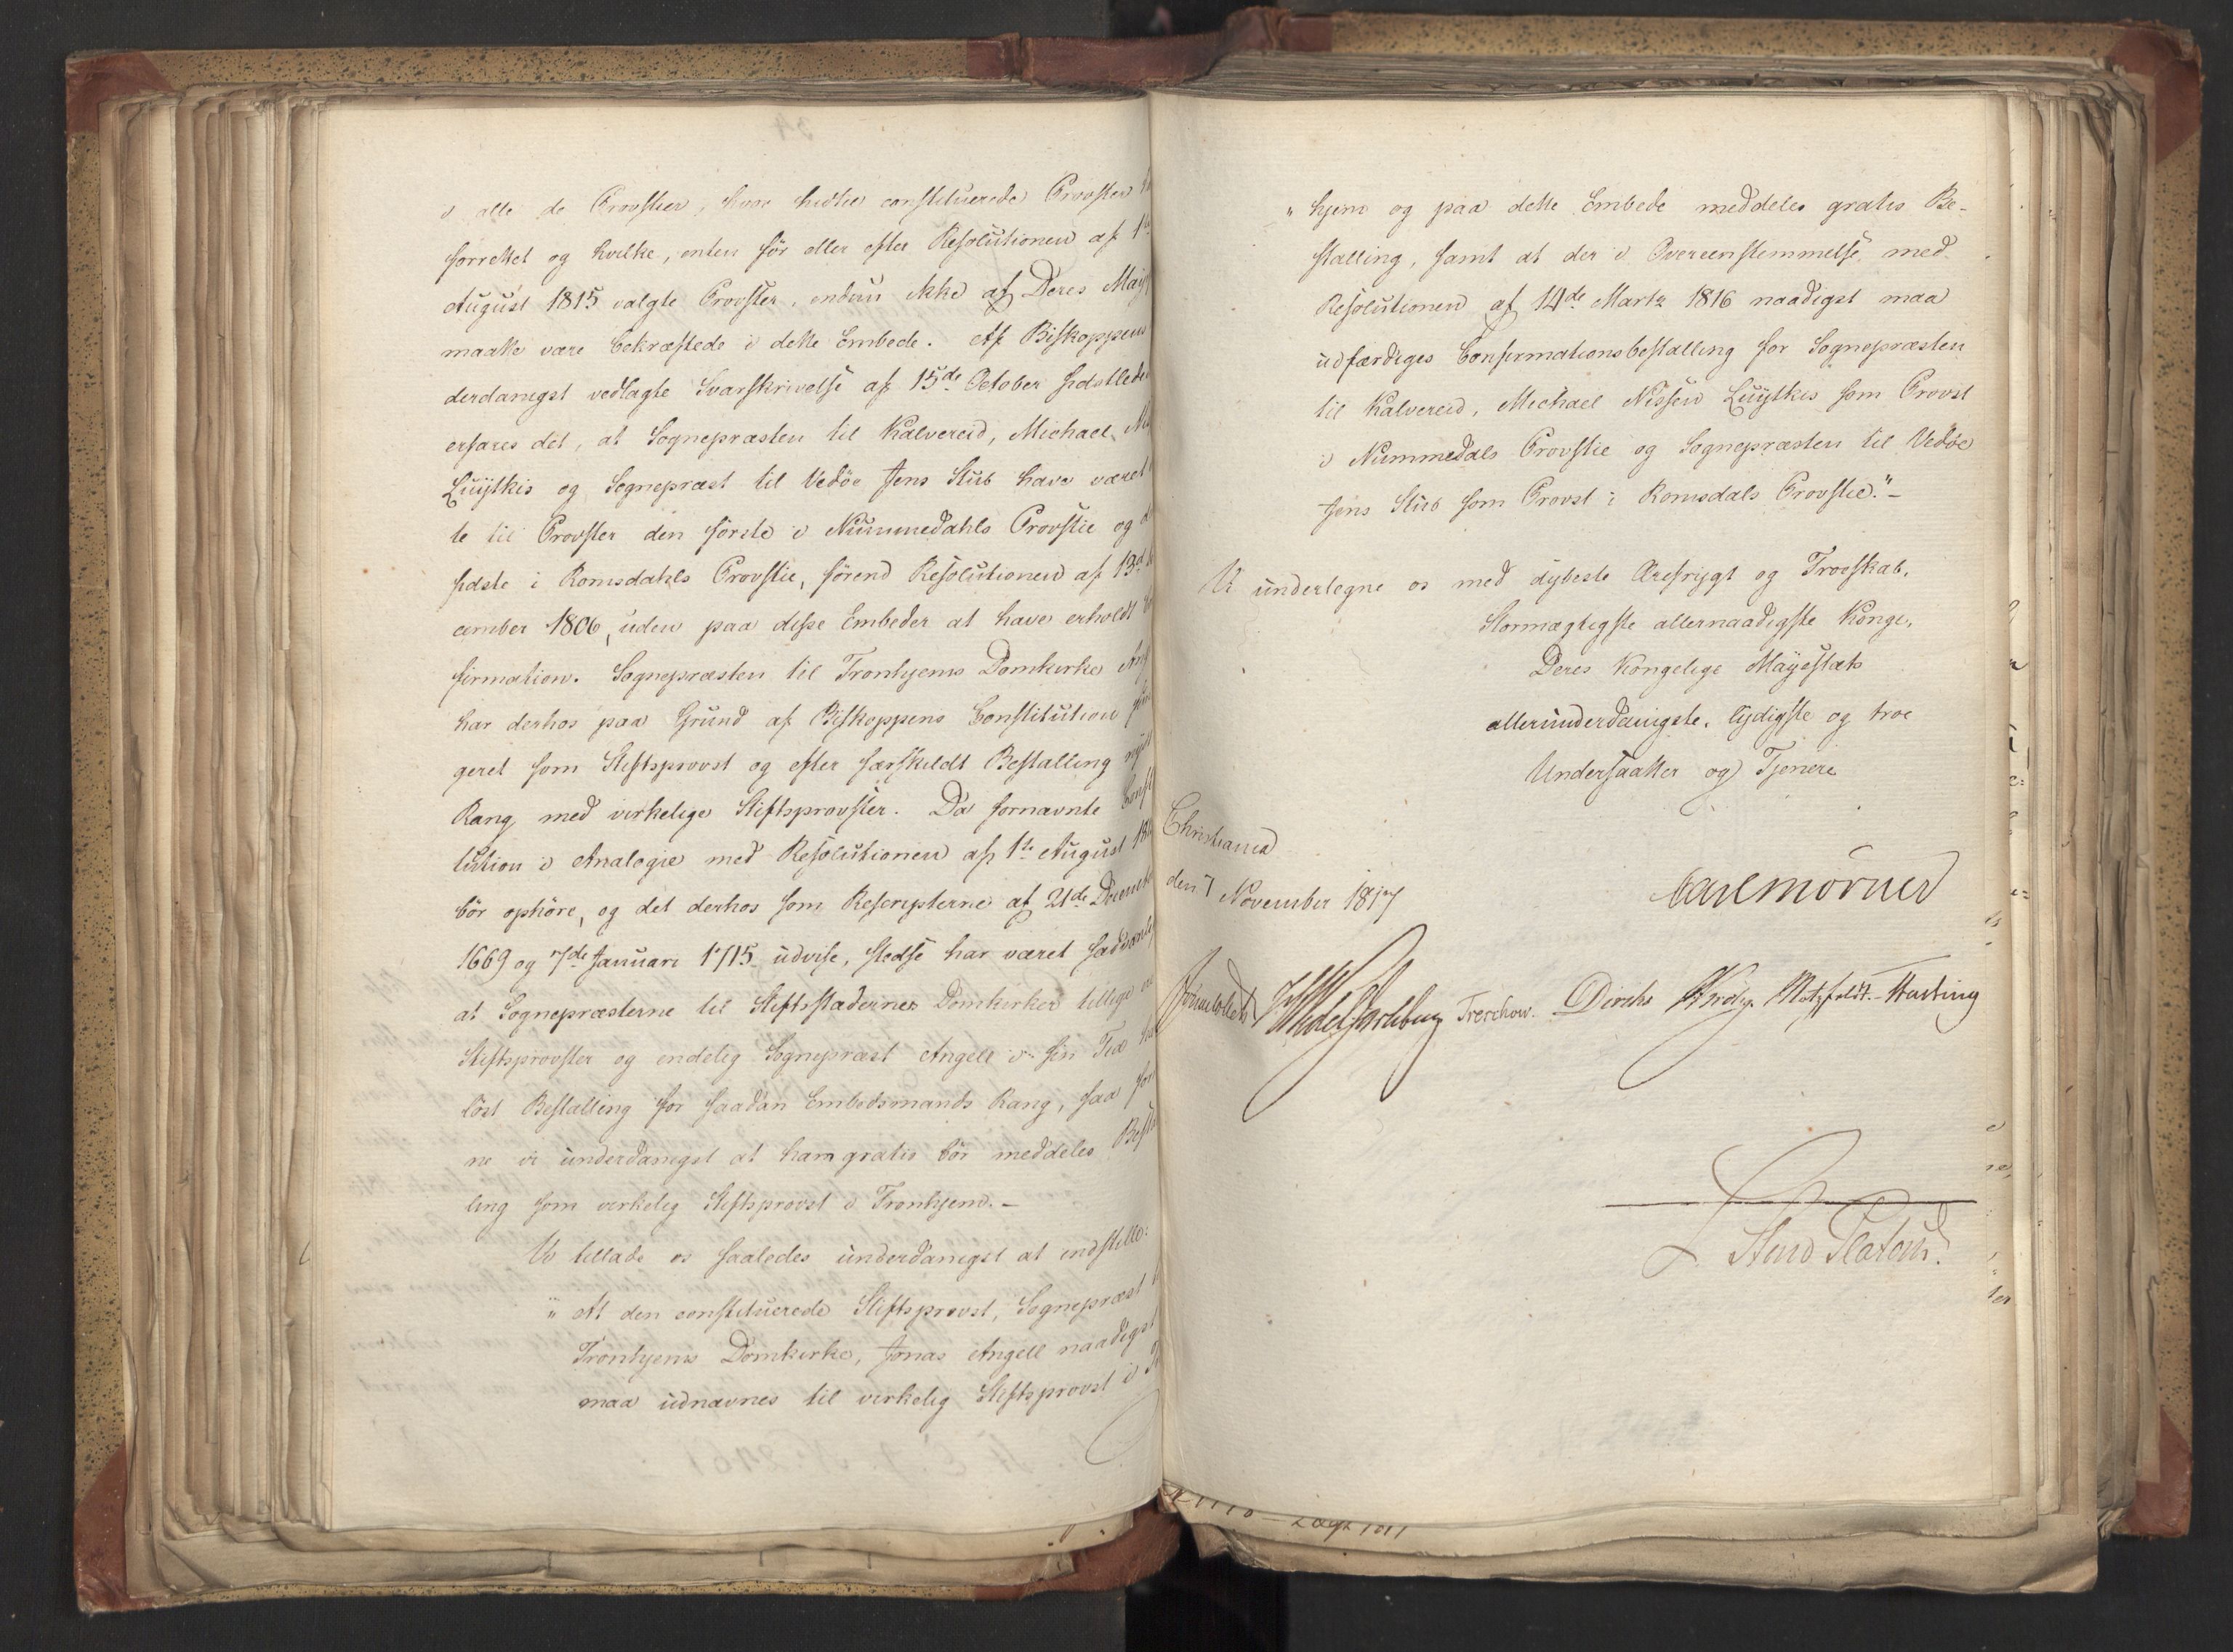 i alle de Provstier, hvor hidtil constituerede Provster
forrettet og hvilke, enten för eller efter Resolutionen af 1ste
August 1815 valgte Provster, endnu ikke af Deres Maje
maatte være bekræftede i dette Embede. Af Biskoppens
derdanigst vedlagte Svarskrivelse af 15de October sidstleden
erfares det, at Sognepræsten til Kalvereid, Michael Nis
Luytkis og Sognepræst til Vedöe Jens Stub have været
te til Provster den förste i Nummedahls Provstie og d
sidste i Romsdahls Provstie, förend Resolutionen af 13de
cember 1806, uden paa disse Embeder at have erholdt
firmation. Sognepræsten til Tronhjems Domkirke Ang
har derhos paa Grund af Biskoppens Constitution
geret som Stiftsprovst og efter særskildt Bestalling nydt
Rang med virkelige Stiftsprovster. Da fornævnte Const
tution i Analogie med Resolutionen af 1ste August 18
bör ophöre, og det derhos som Rescripterne af 21de Decemb
1669 og 7de Januari 1715 udvise, stedse har været sædvanlig
at Sognepræsterne til Stiftsstædernes Domkirker tillige
Stiftsprovster og endelig Sognepræst Angell i sin Tid
löst Bestalling for saadan Embedsmands Rang, saa for
ne vi underdanigst at ham gratis bör meddeles Best
ling som virkelig Stiftsprovst i Tronhjem. -
Vi tillade os saaledes underdanigst at indstille:
" At den constituerede Stiftsprovst, Sognepræst
Tronhjems Domkirke, Jonas Angell naadigst
maa udnævnes til virkelig Stiftsprovst i
" hjem og paa dette Embede meddeles gratis Be-
stalling, samt at der i Overeenstemmelse med
Resolutionen af 14de Marts 1816 naadigst maa
udfærdiges Confirmationsbestalling for Sognepræsten
til Kalvereid, Michael Nissen Luytkis som Provst
i Nummedals Provstie og Sognepræsten til Vedöe
Jens Stub som Provst i Romsdals Provstie." -
Vi undertegne os med dybeste Ærefrygt og Troeskab,
Stormægtigste allernaadigste Konge,
Deres Kongelige Mayestæts
allerunderdanigste, lydigste og troe
Undersaatter og Tjenere
Christiania
den 7 November 1817
Carl Mörner
Sommerhielm Wedel Jarlsberg Treschow. Diriks Krog. Motzfeldt. - Hasting